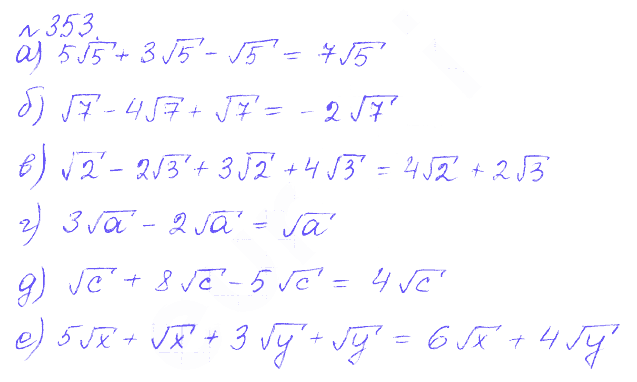 №353.
а) 5√5 + 3√5 - √5 = 7√5
б) √7 - 4√7 + √7 = -2√7
в) √2 - 2√3 + 3√2 + 4√3 = 4√2 + 2√3
г) 3√a - 2√a = √a
д) √c + 8√c - 5√c = 4√c
е) 5√x + √x + 3√y + √y = 6√x + 4√y